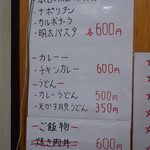 ナポリタン
カルボナーラ
明太パスタ 各600円
ーカレーー
チキンカレー 600円
ーうどんー
カレーうどん 500円
天かす月見うどん 350円
ーご飯物ー
焼き肉丼 600円